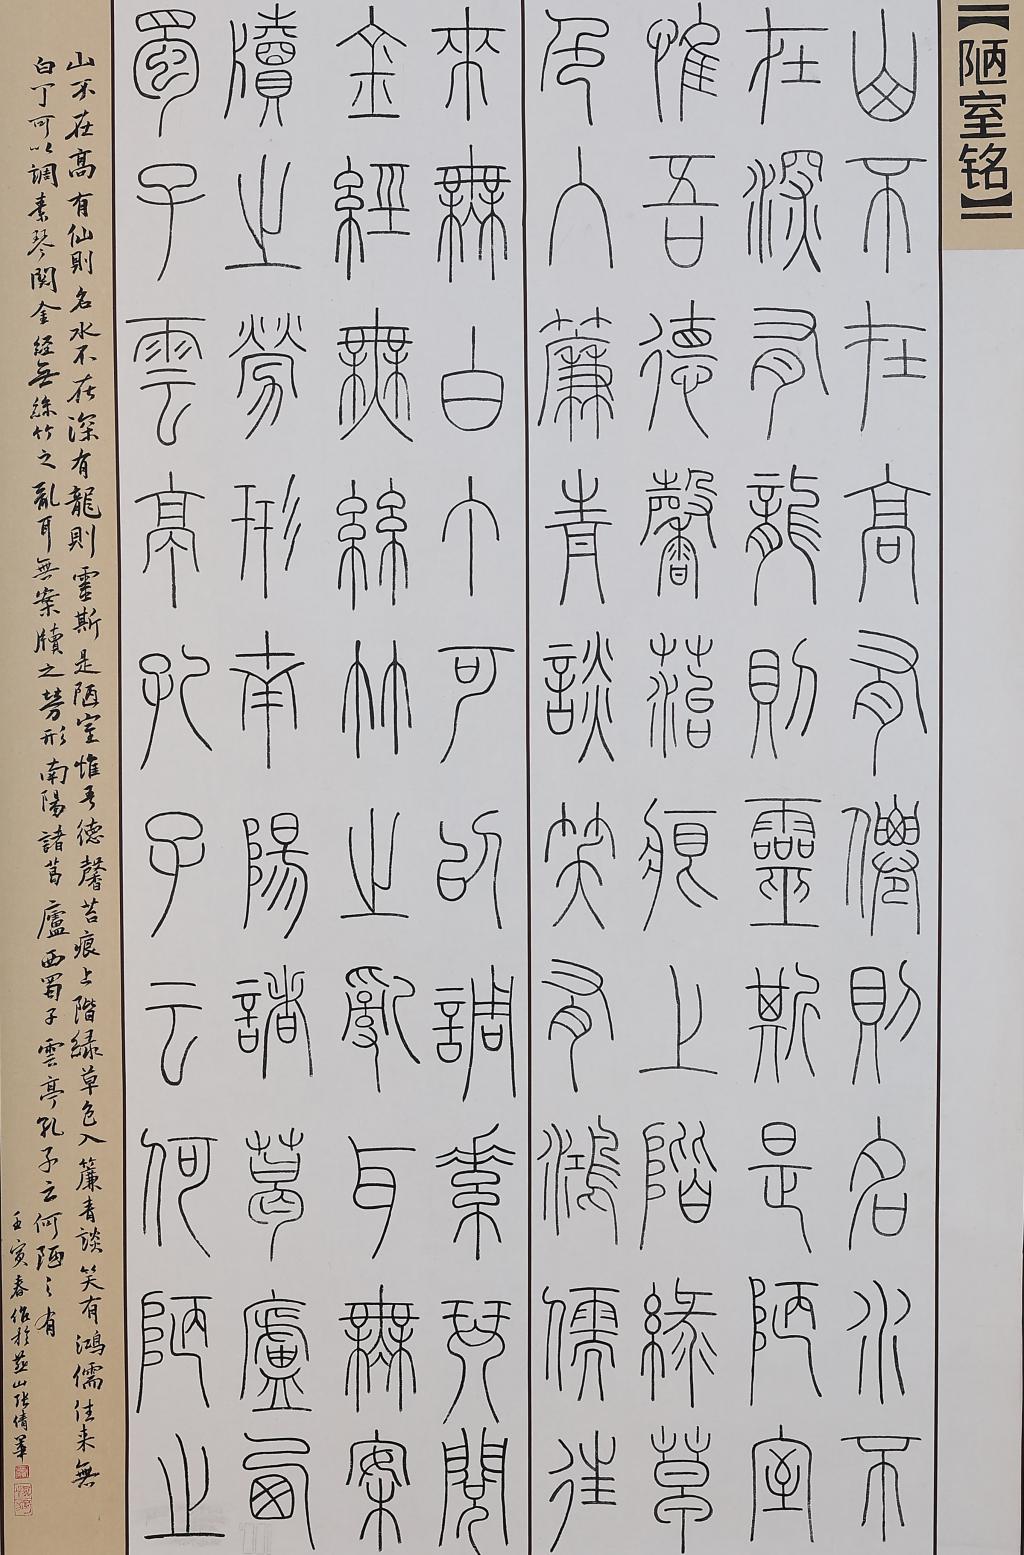 【陋室铭】
山不在高有僊則名水不
在深有龍則靈斯是陋室
惟吾德馨菭痕上階綠草
色入簾青談笑有鴻儒往
來無白丁可以調素琴閱
金經無絲竹之亂耳無案
牘之勞形南陽諸葛廬西
蜀子雲亭孔子云何陋之
山不在高有仙則名水不在深有龍則靈斯是陋室惟吾德馨苔痕上階緑草色入簾青談笑有鴻儒往来無
白丁可以調素琴閱金経無絲竹之亂耳無案牘之勞形南陽諸葛廬西蜀子雲亭孔子云何陋之有
壬寅春作於燕山张倩華